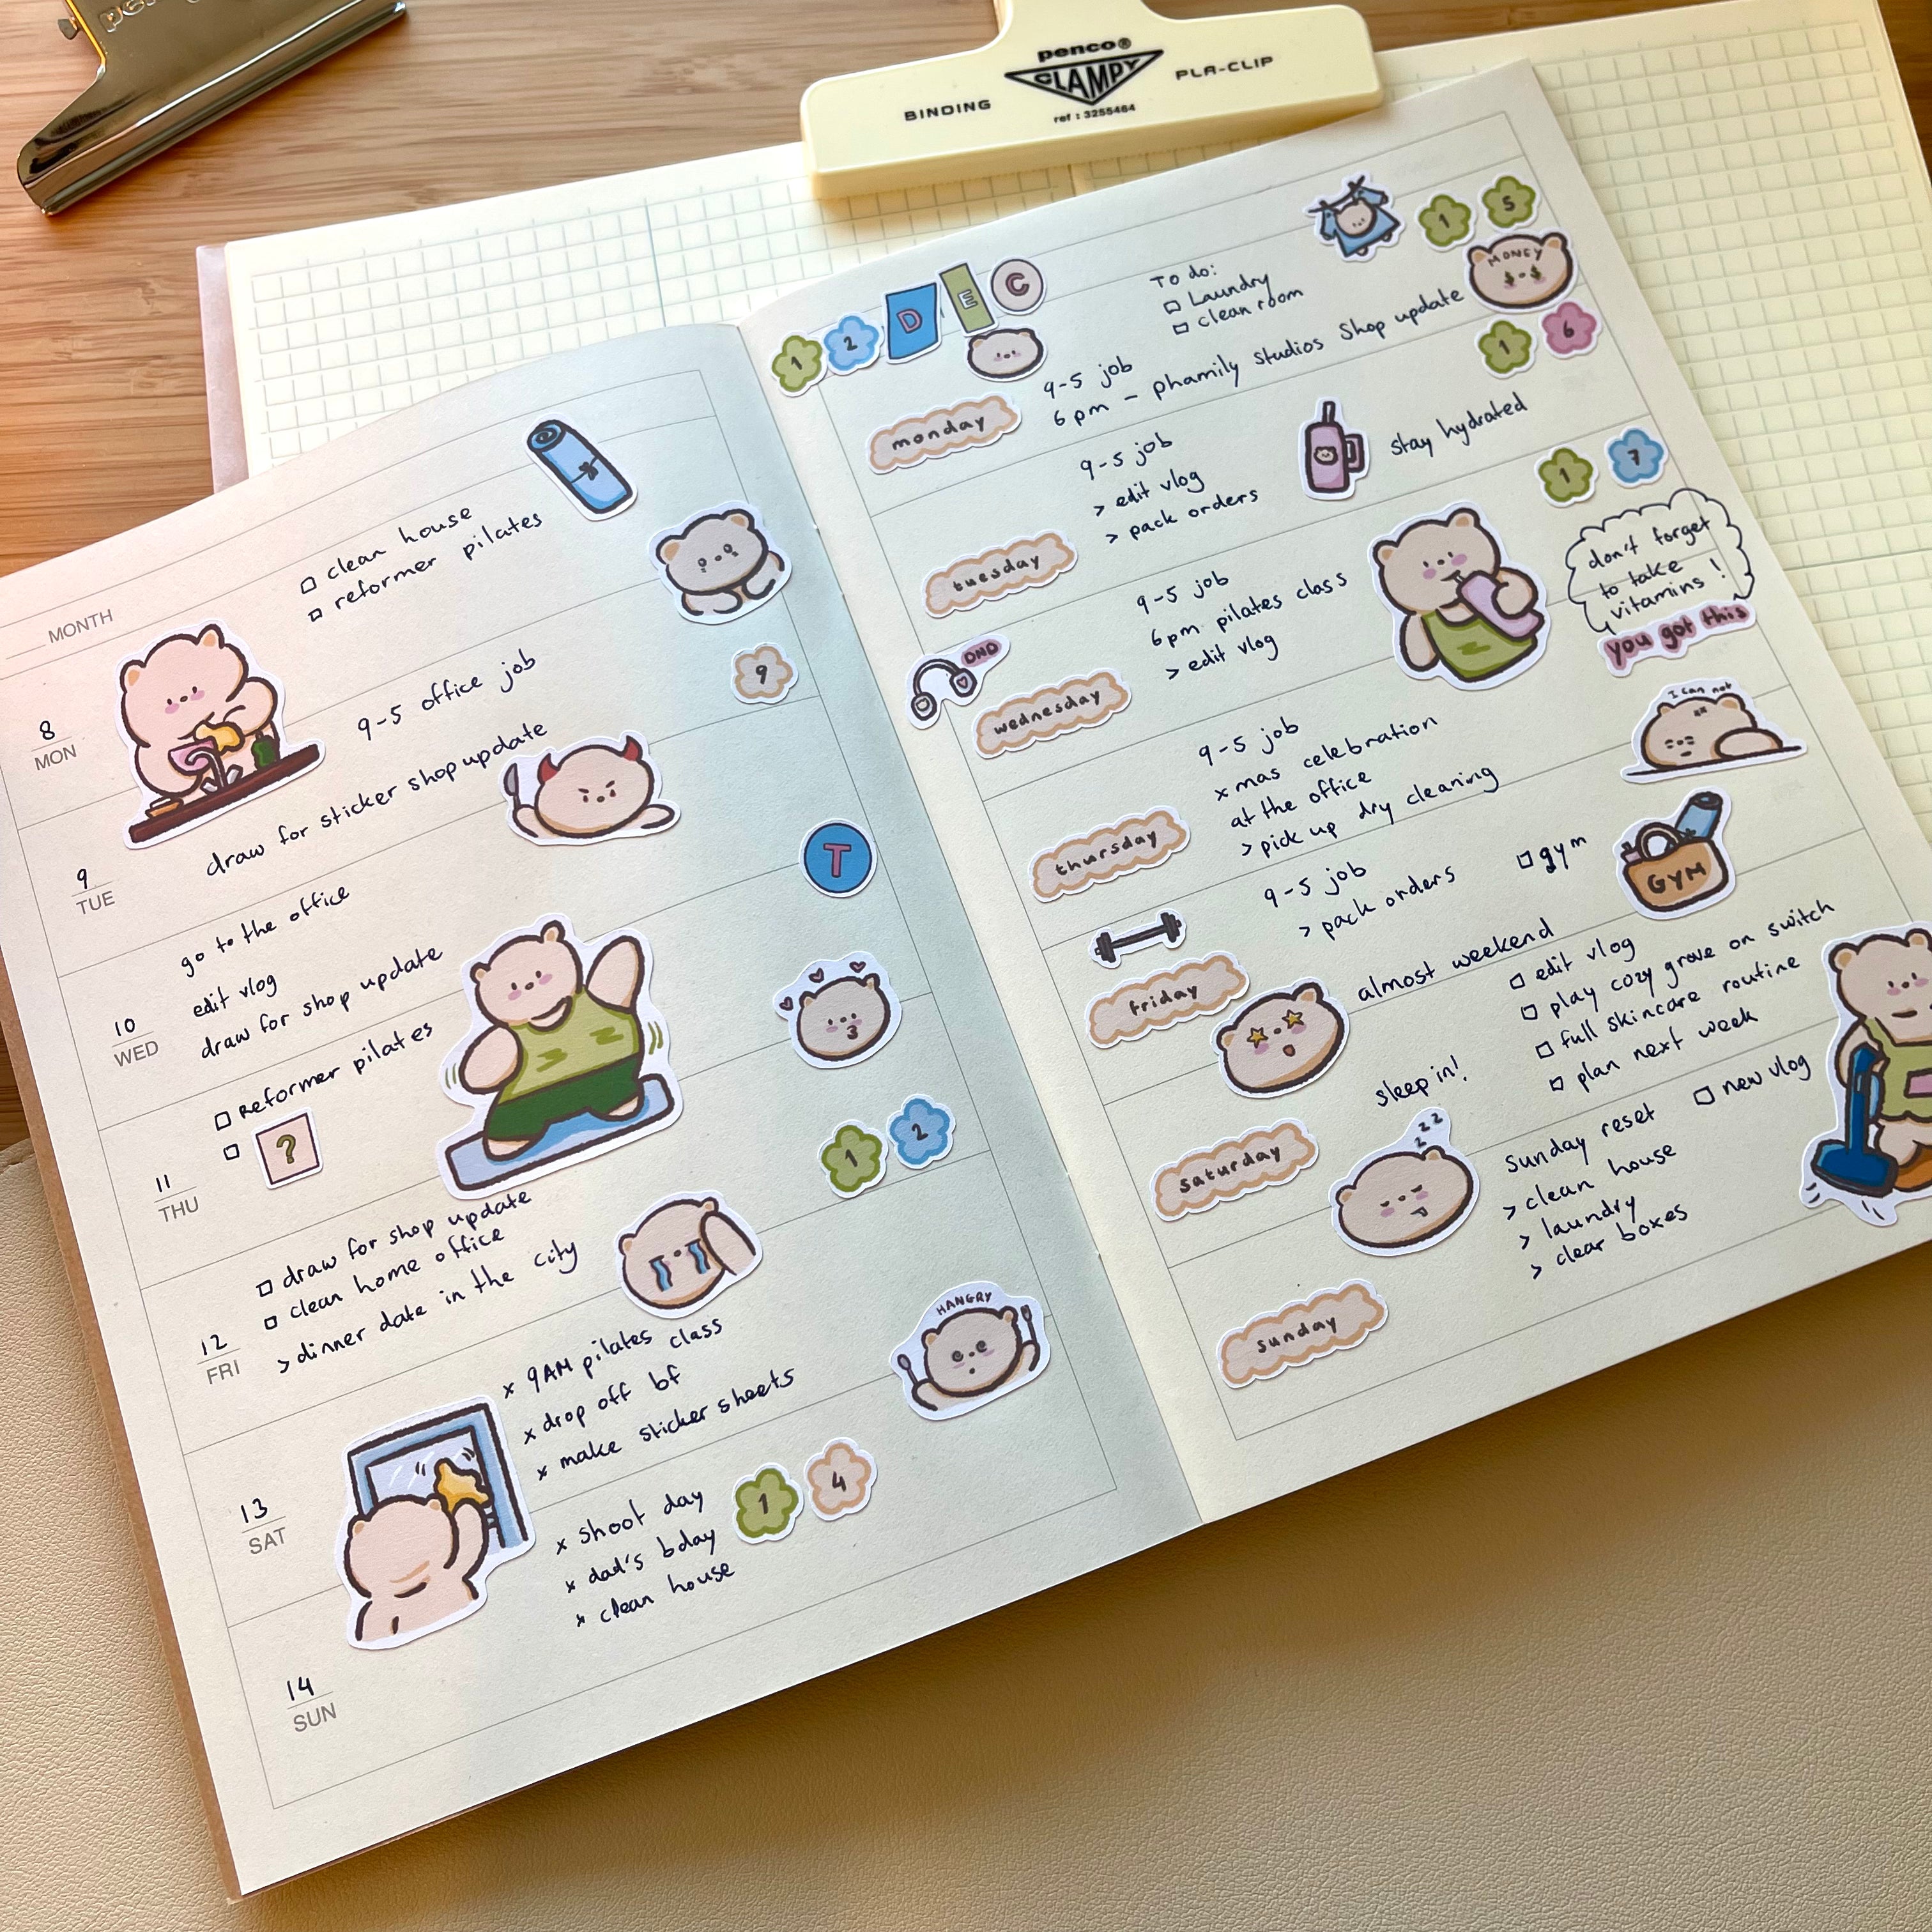 penco®
CLAMPY
BINDING
PLA-CLIP
ref : 3255464
MONTH
clean house
reformer pilates
8
MON
9-5 office job
draw for sticker shop update
9
9
TUE
go to the office
edit vlog
draw for shop update
T
10
WED
Reformer pilates
?
11
THU
draw for shop update
clean home office
> dinner date in the city
1 2
12
FRI
x 9AM pilates class
x drop off bf
x make sticker sheets
HANGRY
13
SAT
x shoot day
x dad's bday
x clean house
1 4
14
SUN
1 2 D E C
To do:
Laundry
clean room
1 5
MONEY
9-5 job
6pm - phamily studios Shop update
monday
1 6
9-5 job
> edit vlog
> pack orders
stay hydrated
tuesday
1 7
9-5 job
6pm pilates class
> edit vlog
don't forget
to take
vitamins!
you got this
DND
wednesday
9-5 job
xmas celebration
at the office
> pick up dry cleaning
I can not
thursday
9-5 job
> pack orders
gym
GYM
friday
almost weekend
edit vlog
play cozy grove on switch
full skincare routine
plan next week
sleep in!
z z z
saturday
Sunday reset
> clean house
> laundry
> clear boxes
new vlog
sunday